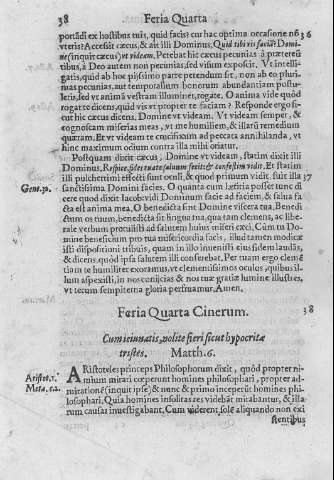 38 Feria Quarta
portãdi ex hostibus tuis, quid facis? cur hac optima occasione nõ 36
vteris? Accessit cæcus, & ait illi Dominus, Quid tibi vis faciã? Domi-
ne (inquit cæcus) vt videam. Petebat hic cæcus pecunias à prætereũ
tibus, à Deo autem non pecunias, sed visum exposcit. Vt intelli-
gatis, quid ab hoc piissimo parre petendum sit, non ab eo pluri-
mas pecunias, aut temporalium bonorum abundantiam postu-
letis, sed vt animã vestram illuminet, rogate. O anima vide quód
rogatte dicens, quid vis vt propter te faciam? Responde ergo si-
cut hic cæcus dicens, Domine vt videam. Vt videam semper, &
cognoscam miserias meas, vt me humiliem, & illarũ remedium
quæram. Et vt videam te crucifixum ad peccata annihilanda, vt
hinc maximum odium contra illa mihi oriatur.
Postquam dixit cæcus, Domine vt videam, statim dixit illi
Dominus, Respice, fides tua te saluum fecit: & confestim vidit. Et statim
illi pulcherrimi effecti sunt oculi, & quod primum vidit fuit illa 37
Gene. 32. sanctissima Domini facies. O quanta cum lætitia posset tunc di
cere quod dixit Iacob: vidi Dominum facie ad faciem, & salua fa
cta est anima mea. O benedicta sint Domine viscera tua, Benedi
ctum os tuum, benedicta sit lingua tua, quæ tam clemens, ac libe-
rale verbum protulisti ad salutem huius miseri cæci. Cùm tu Do-
mine beneficium pro tua misericordia facis, illud tamen modicæ
isti dispositioni tribuis, quam in illo inuenisti eius fidem laudãs,
& dicens, quòd ipsa salutem illi conferebat. Per tuam ergo cleme̅
tiam te humiliter exoramus, vt clementissimos oculos, quibus il-
lum aspexisti, in nos conijcias, & nos tua gratia lumine illustres,
vt tecum sempiterna gloria perfruamur. Amen.
Feria Quarta Cinerum. 38
Cum ieiunatis, nolite fieri sicut hypocritæ
tristes. Matth. 6.
Aristot. 1. ARistoteles princeps Philosophorum dixit, quòd propter ni-
Meta. c. 2. mium mirari cœperunt homines philosophari, propter ad-
mirationẽ (inquit ipse) & nunc & primo inceperũt homines phi-
losophari. Quia homines insolitas res videbãt mirabantur, & illa-
rum causas inuestigabant. Cùm viderent solẽ aliquando non exi
stentibus